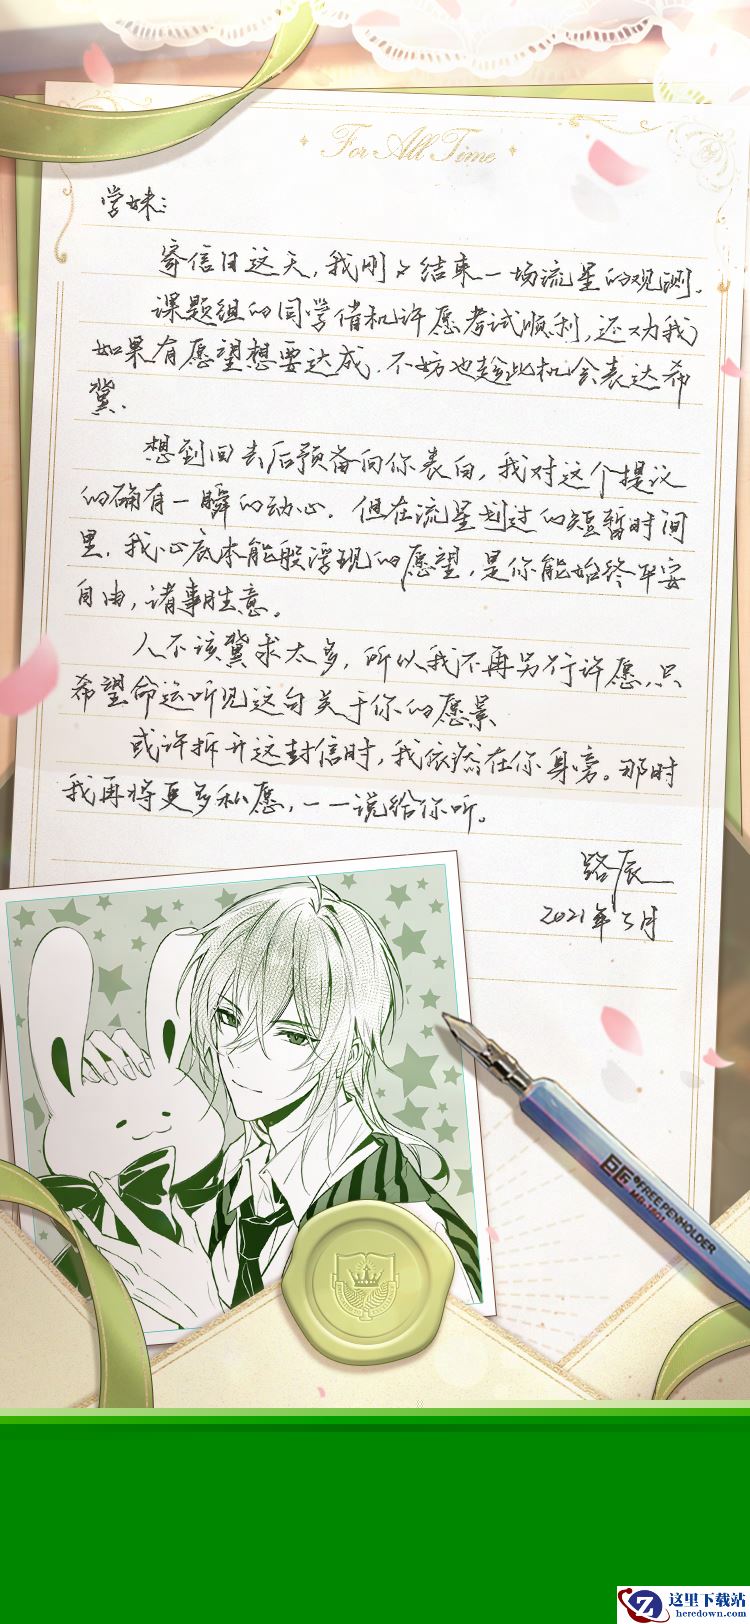 For All Time
学妹:
寄信日这天,我刚刚结束一场流星的观测.
课题组的同学借机许愿考试顺利,还劝我
如果有愿望想要达成.不妨也趁此机会表达希
冀.
想到回去后预备向你表白,我对这个提议
的确有一瞬的动心.但在流星划过的短暂时间
里,我心底本能般浮现的愿望,是你能始终平安
自由,诸事胜意。
人不该冀求太多,所以我不再另行许愿,只
希望命运听见这句关于你的愿景
或许拆开这封信时,我依然在你身旁。那时
我再将更多私愿,一一说给你听。
路辰
2021年5月
匠 FREE PENHOLDER
这里下载站
heredown.com